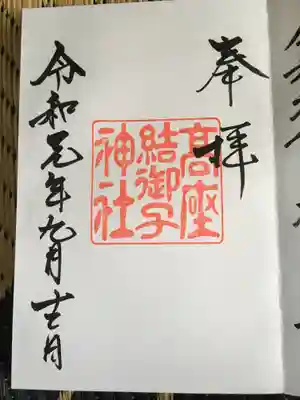 奉拝
髙座
結御子
神社
令和元年九月十二日